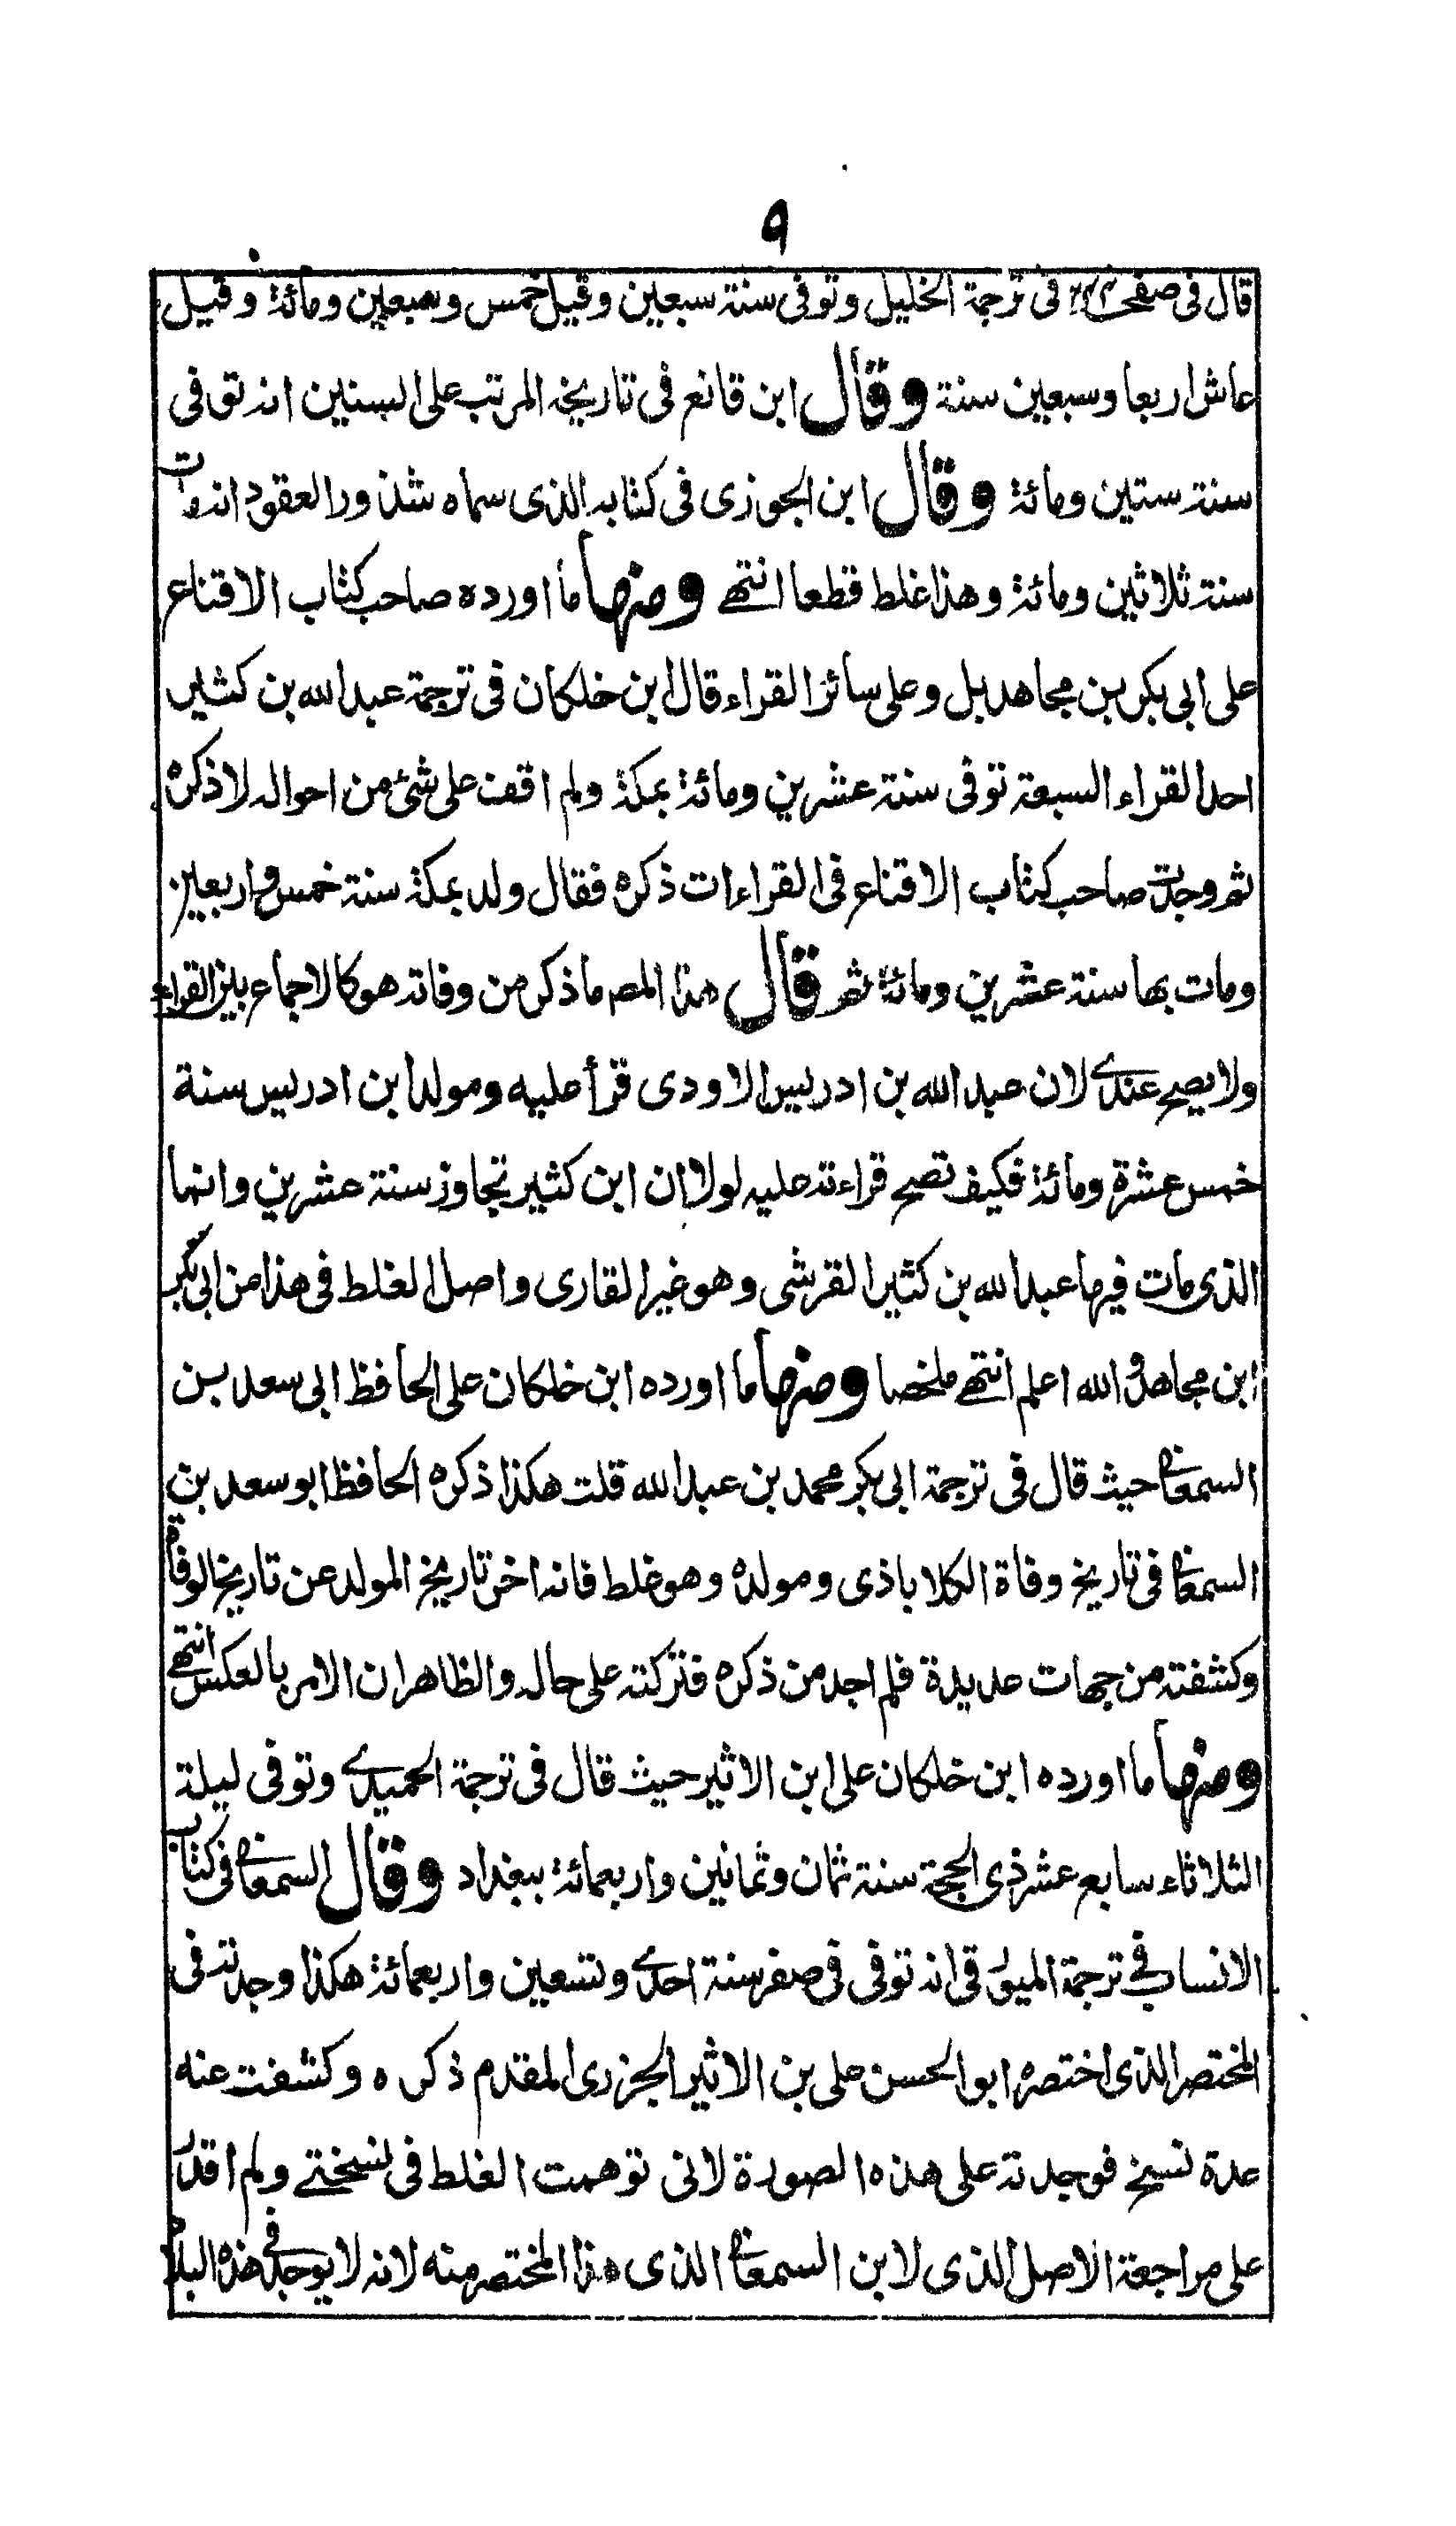 ٩
قال فى صفحه فى ترجمة الخليل وتوفى سنة سبعين وقيل خمس وسبعين ومائة وقيل
عاش اربعا وسبعين سنة وقال ابن قانع فى تاريخه المرتب على السنين انه توفى
سنة ستين ومائة وقال ابن الجوزى فى كتابه الذى سماه شذور العقود انه مات
سنة ثلاثين ومائة وهذا غلط قطعا انتهى ومنها ما اورده صاحب كتاب الاقناع
على ابى بكر بن مجاهد بل وعلى سائر القراء قال ابن خلكان فى ترجمة عبد الله بن كثير
احد القراء السبعة توفى سنة عشرين ومائة بمكة ولم اقف على شئ من احواله لاذكره
ثم وجدت صاحب كتاب الاقناع فى القراءات ذكره فقال ولد بمكة سنة خمس واربعين
ومات بها سنة عشرين ومائة ثم قال هذا المصـ ما ذكر من وفاته هو كالاجماع بين القراء
ولا يصح عندى لان عبد الله بن ادريس الاودى قرأ عليه ومولد ابن ادريس سنة
خمس عشرة ومائة فكيف تصح قراءته عليه لولا ان ابن كثير تجاوز سنة عشرين وانما
الذى مات فيها عبد الله بن كثير القرشى وهو غير القارى واصل الغلط فى هذا من ابى بكر
ابن مجاهد والله اعلم انتهى ملخصا ومنها ما اورده ابن خلكان على الحافظ ابى سعد بن
السمعانى حيث قال فى ترجمة ابى بكر محمد بن عبد الله قلت هكذا ذكره الحافظ ابو سعد بن
السمعانى فى تاريخ وفاة الكلاباذى ومولده وهو غلط فانه اخر تاريخ المولد عن تاريخ الوفاة
وكشفته من جهات عديدة فلم اجد من ذكره فتركته على حاله والظاهر ان الامر بالعكس انتهى
ومنها ما اورده ابن خلكان على ابن الاثير حيث قال فى ترجمة الحميدى وتوفى ليلة
الثلاثاء سابع عشر ذى الحجة سنة ثمان وثمانين واربعمائة ببغداد وقال السمعانى فى كتاب
الانساب فى ترجمة الميورقى انه توفى فى صفر سنة احدى وتسعين واربعمائة هكذا وجدته فى
المختصر الذى اختصره ابو الحسن على بن الاثير الجزرى المقدم ذكره وكشفت عنه
عدة نسخ فوجدته على هذه الصورة لانى توهمت الغلط فى نسختى ولم اقدر
على مراجعة الاصل الذى لابن السمعانى الذى هذا المختصر منه لانه لا يوجد فى هذه البلاد